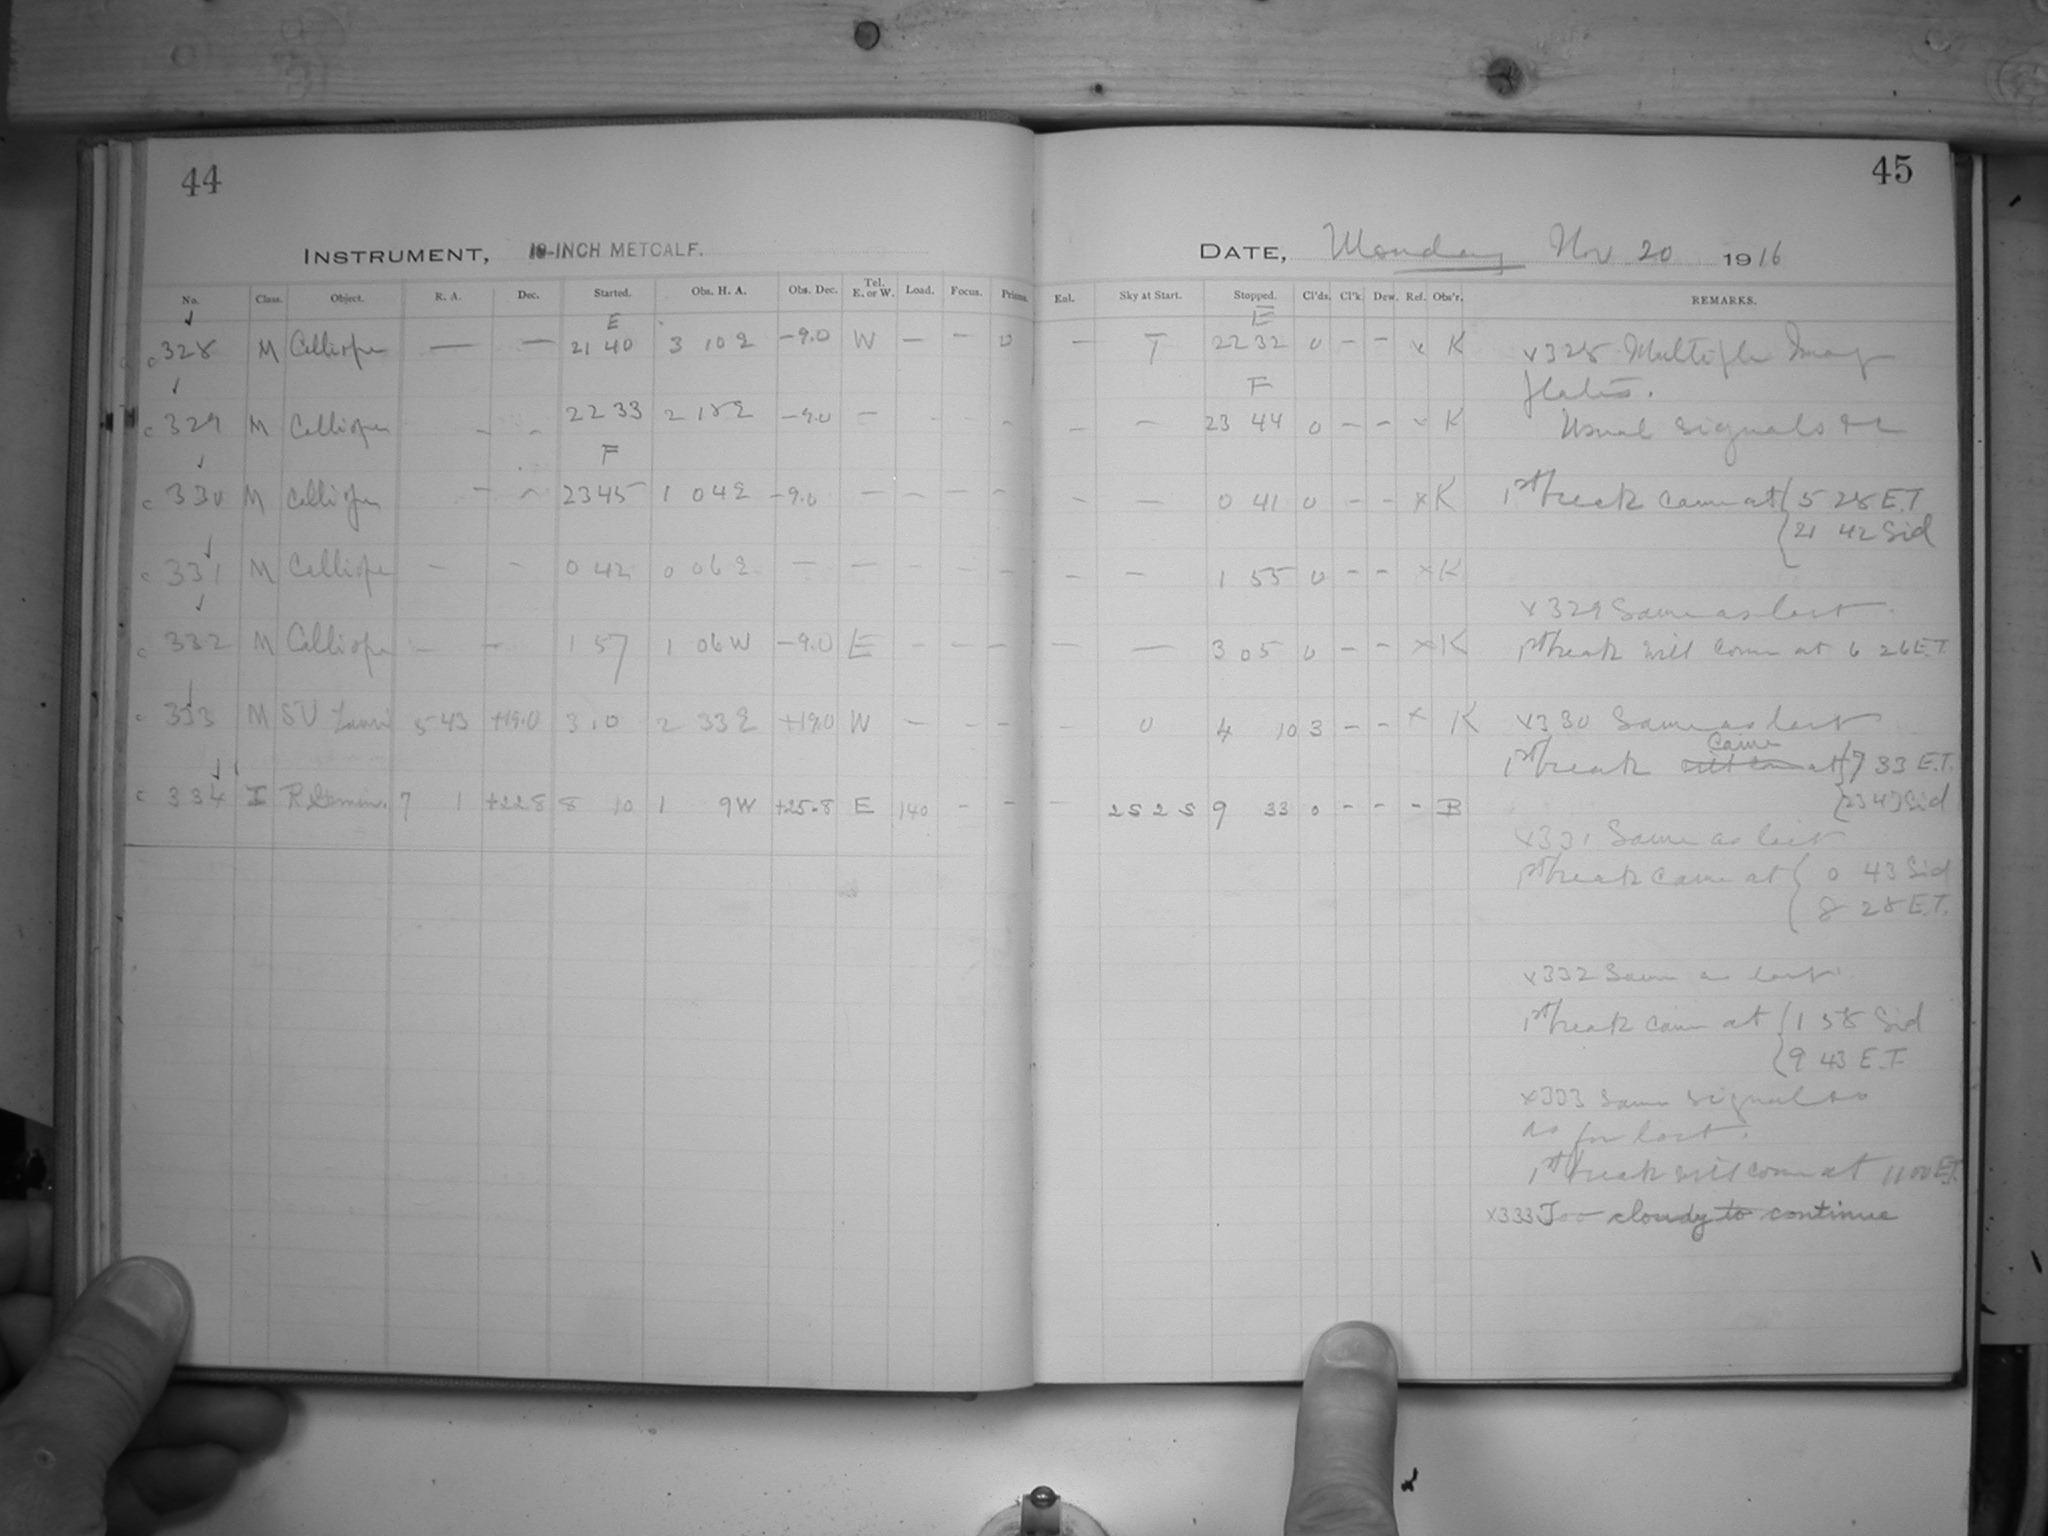 44
INSTRUMENT, 10-INCH METCALF.
No. Class. Object. R. A. Dec. Started. Obs. H. A. Obs. Dec. Tel. E. or W. Load. Focus. Prisms.
E
c 328 M Calliope — — 21 40 3 10 E -9.0 W — — 0
c 329 M Calliope - - 22 33 2 18 E -9.0 - - - -
F
c 330 M Calliope - - 23 45 1 04 E -9.0 - - - -
c 331 M Calliope - - 0 42 0 06 E - - - - -
c 332 M Calliope - - 1 57 1 06 W -9.0 E - - -
c 333 M SU Tauri 5 43 +19.0 3 10 2 33 E +19.0 W - - -
c 334 I R Gemin. 7 1 +22.8 8 10 1 9 W +25.8 E 140 - -
45
DATE, Monday Nov 20 1916
Enl. Sky at Start. Stopped. Cl'ds. Cl'k Dew. Ref. Obs'r. REMARKS.
E
- T 22 32 0 - - x K
F
- - 23 44 0 - - x K
- - 0 41 0 - - x K
- - 1 55 0 - - x K
- - 3 05 0 - - x K
- 0 4 10 3 - - x K
- 2525 9 33 0 - - - B
x328 Multiple Image
plates.
Usual signals &c
1st break came at { 5 28 E.T.
{ 21 42 Sid
x329 Same as last
1st break will come at 6 26 E.T.
x330 Same as last
came
1st break will come at { 7 33 E.T.
{ 23 47 Sid
x331 Same as last
1st break came at { 0 43 Sid
{ 8 28 E.T.
x332 Same as last
1st break came at { 1 58 Sid
{ 9 43 E.T.
x333 Same signals
as for last.
1st break will come at 11 00 E.T.
x333 Too cloudy to continue